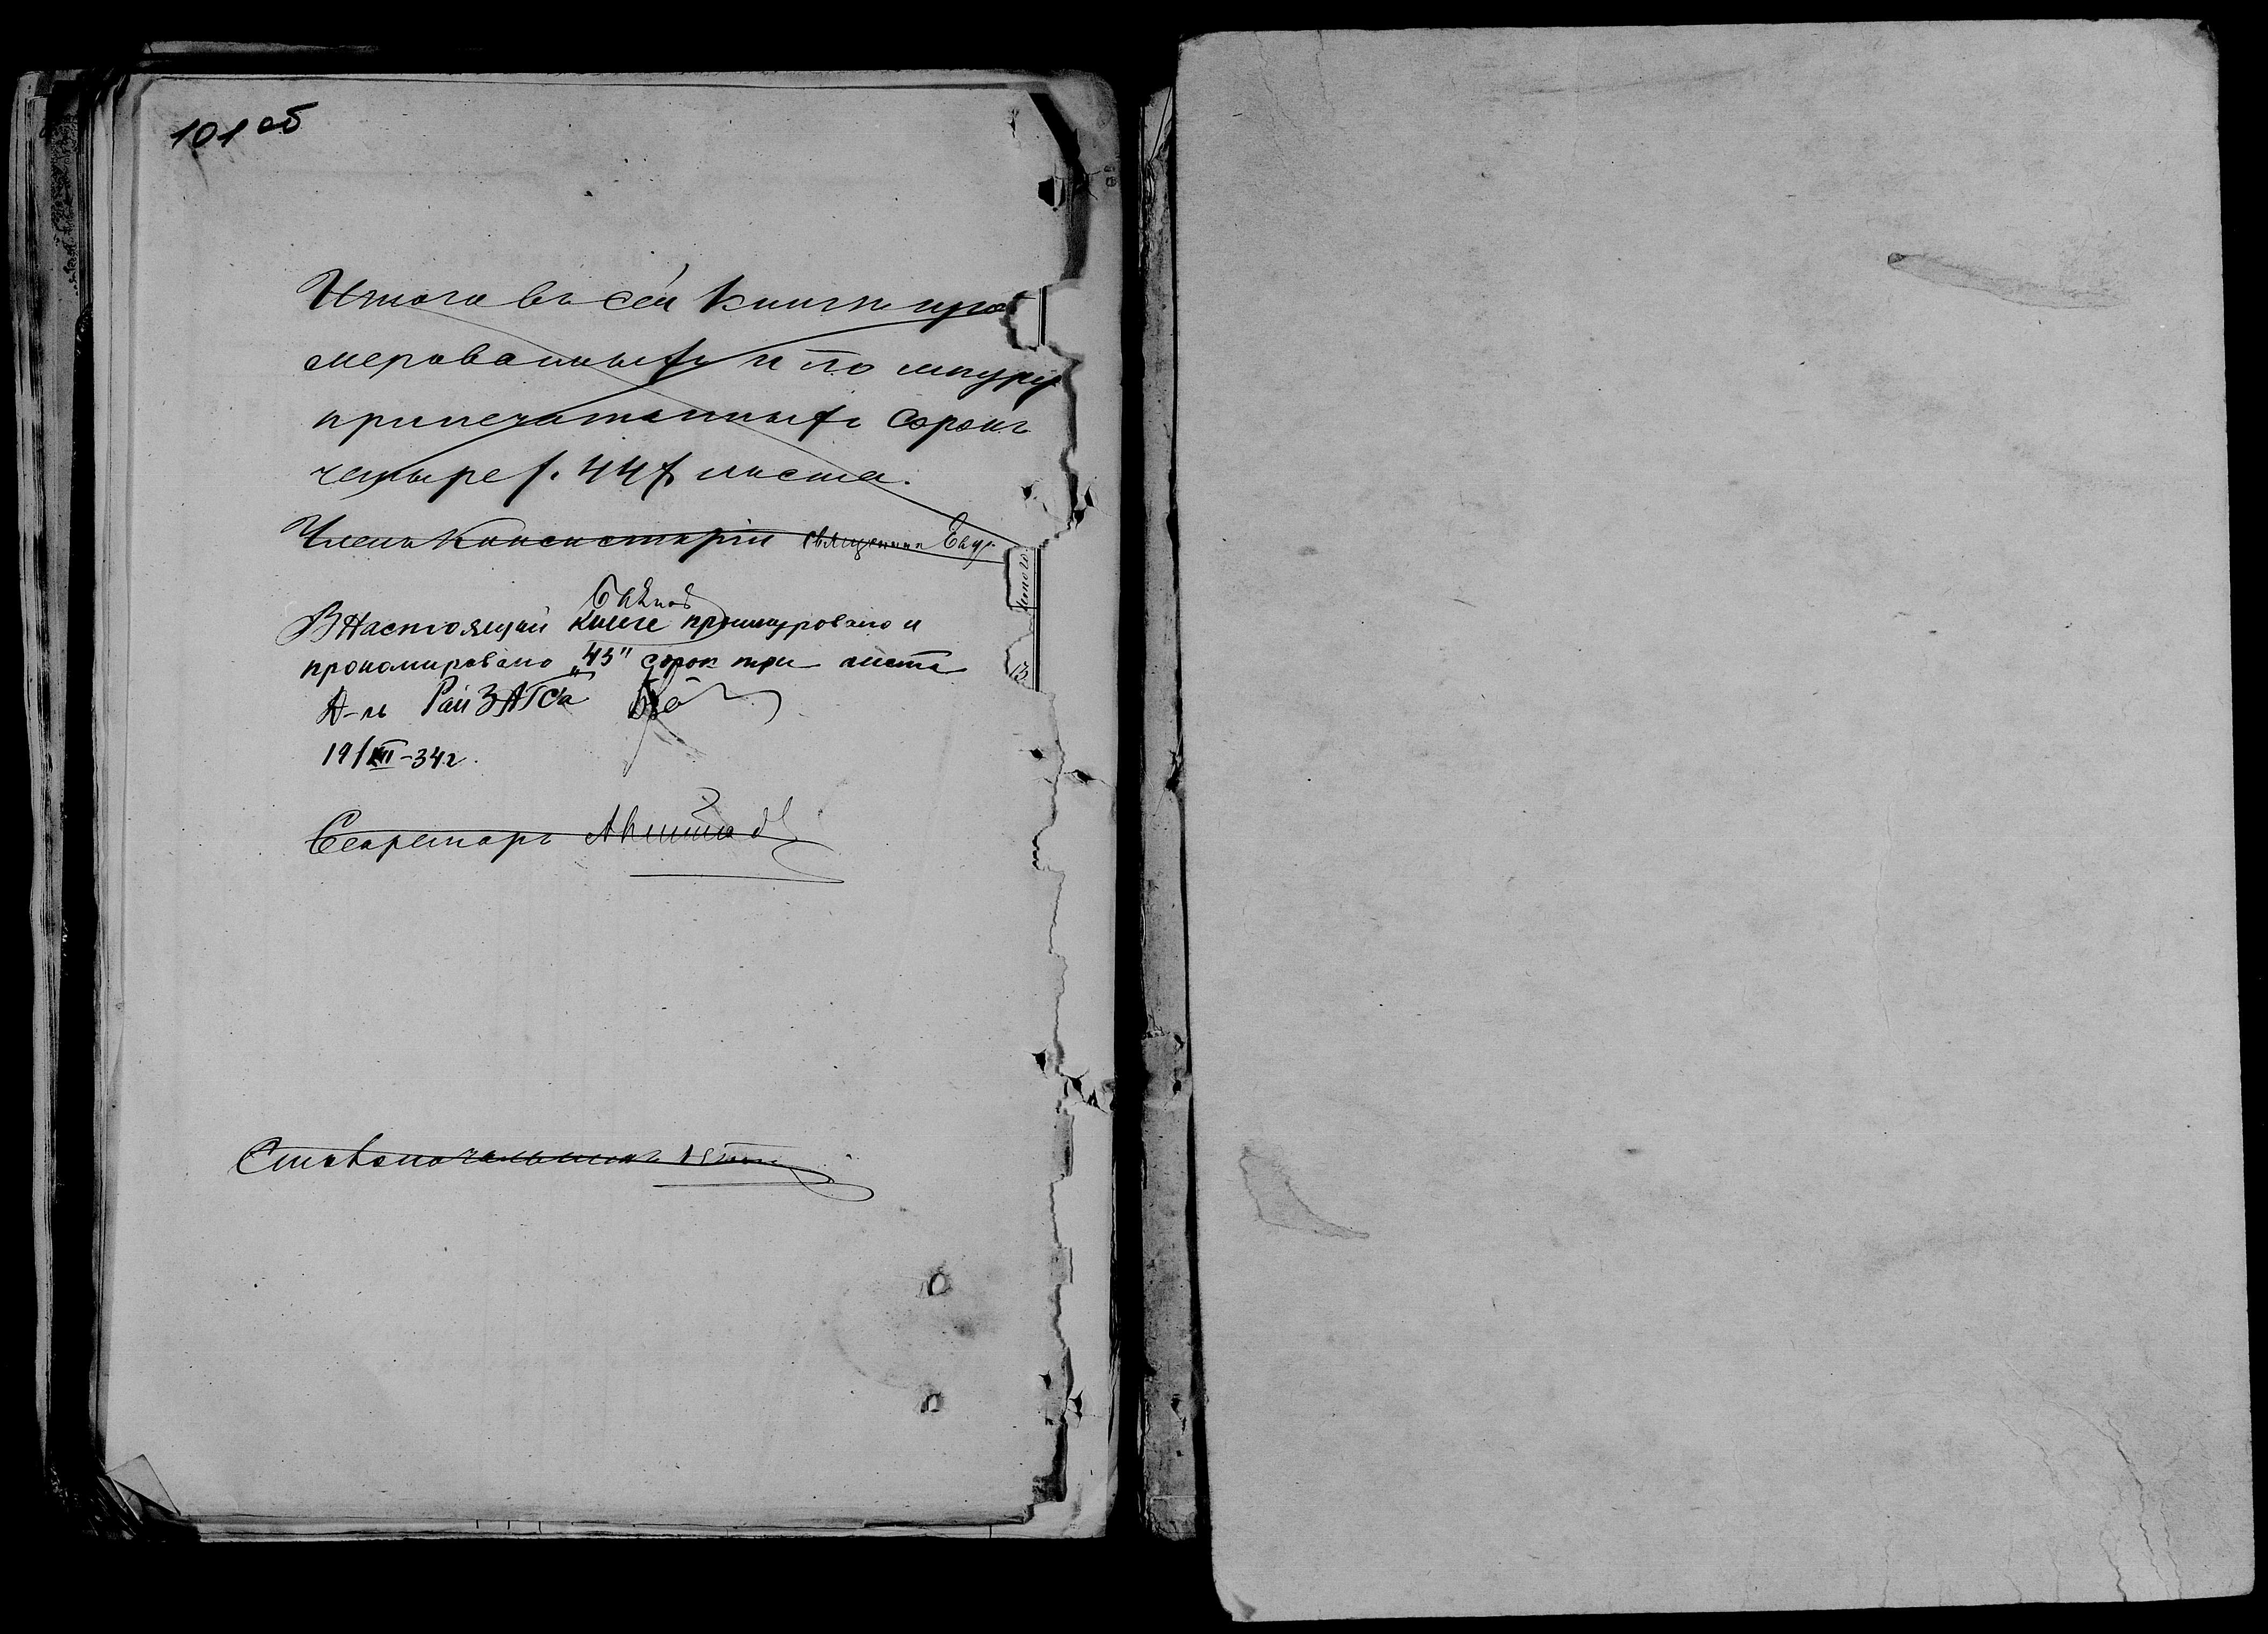 101 об
Итого въ сей книгѣ про
мерованныхъ и по шнуру
припечатанныхъ сорокъ
четыре /. 44 /. листа.
Членъ Консисторіи священникъ
В Настоящей книге прошнуровано и
прономировано „43" сорок три листа
Д-ль РайЗАГСа
19/XII-34г.
Секретарь
Столоначальникъ